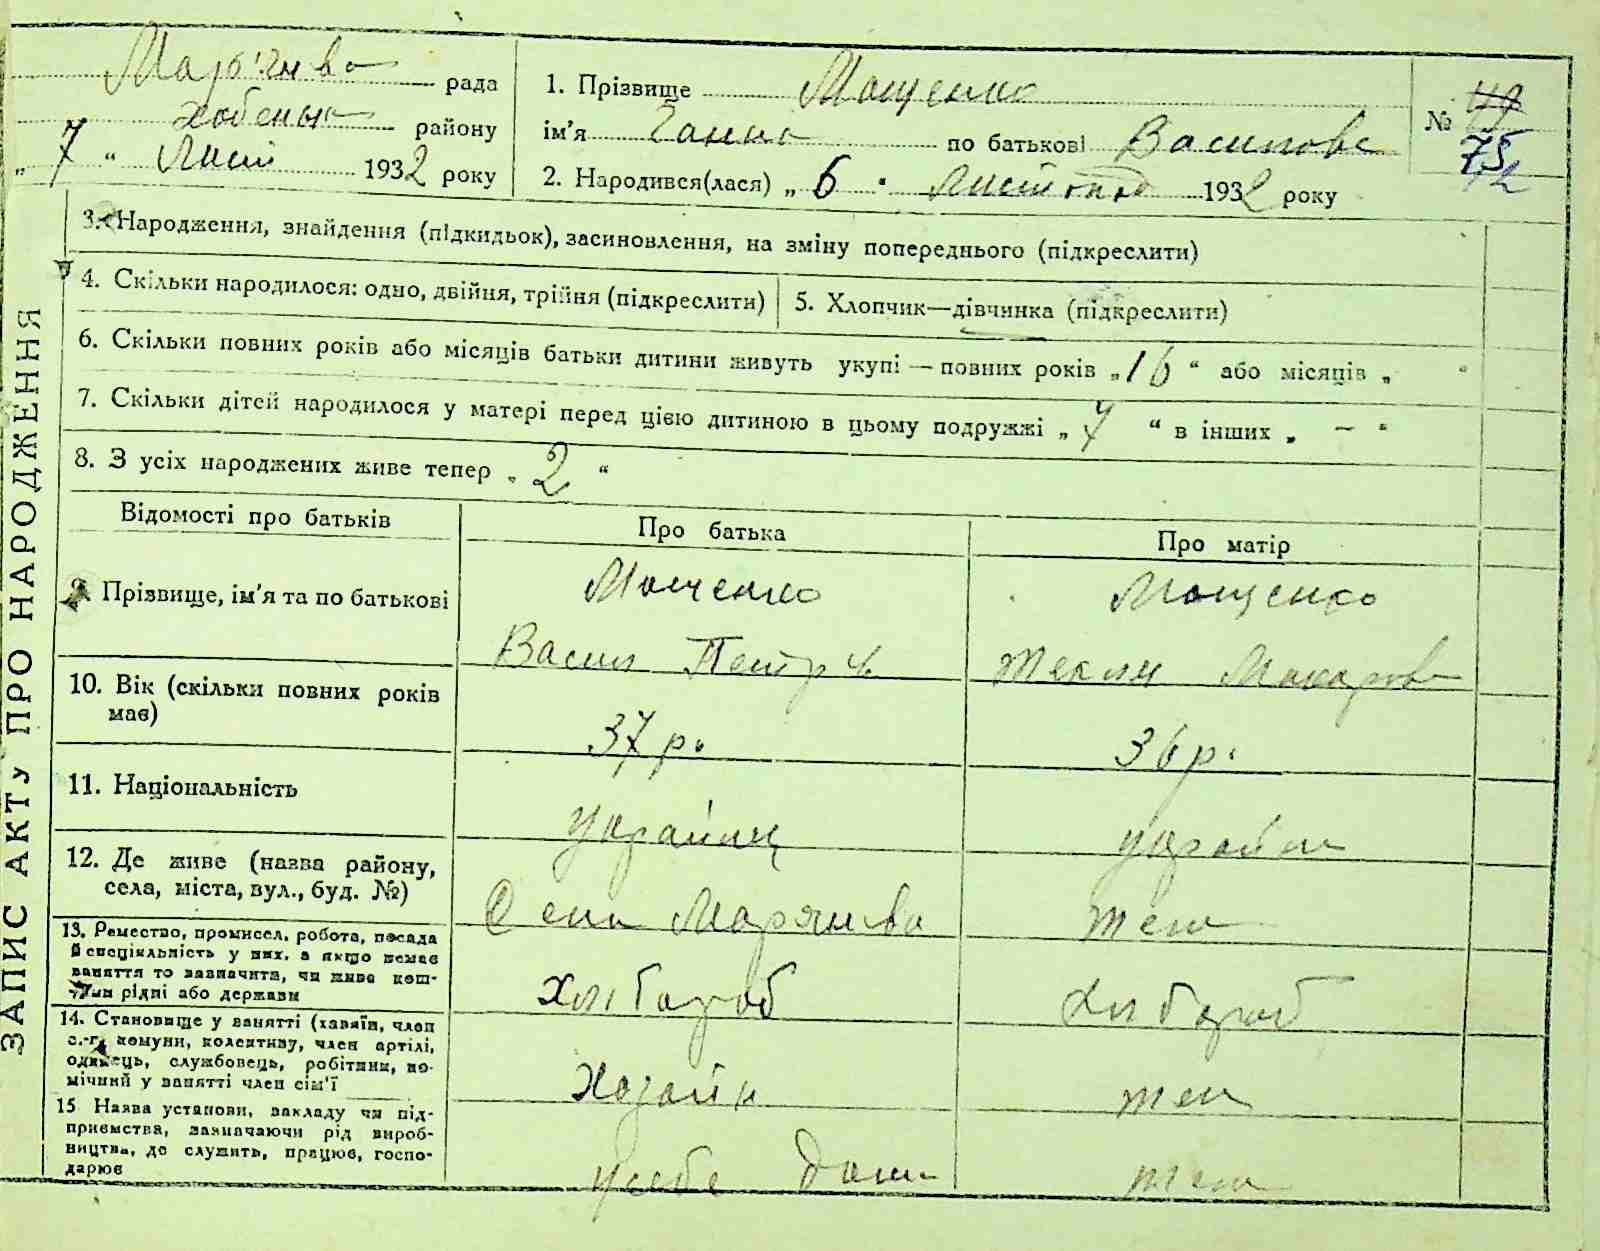 ЗАПИС АКТУ ПРО НАРОДЖЕННЯ
Мар'янівс рада
району
„ 7 “ Лист 1932 року
1. Прізвище Мощенко
ім'я Ганна по батькові Василовс
2. Народився(лася) „ 6 “ Листопад 1932 року
№ 49
75
3. Народження, знайдення (підкидьок), засиновлення, на зміну попереднього (підкреслити)
4. Скільки народилося: одно, двійня, трійня (підкреслити)
5. Хлопчик—дівчинка (підкреслити)
6. Скільки повних років або місяців батьки дитини живуть укупі — повних років „ 16 “ або місяців „ “
7. Скільки дітей народилося у матері перед цією дитиною в цьому подружжі „ 7 “ в інших „ – “
8. З усіх народжених живе тепер „ 2 “
Відомості про батьків
Про батька
Про матір
9. Прізвище, ім'я та по батькові
Мощенко
Васил Петр ч.
Мощенко
Текля Макаровс
10. Вік (скільки повних років має)
37 р.
36 р.
11. Національність
Украйнц
украйн
12. Де живе (назва району, села, міста, вул., буд. №)
Села Марянівс
теж
13. Ремество, промисел, робота, посада й спеціяльність у них, а якщо немає заняття то зазначити, чи живе коштом рідні або держави
Хлібороб
Хлібороб
14. Становище у занятті (хазяїн, член с.-г. комуни, колективу, член артілі, одинець, службовець, робітник, помічний у занятті член сім'ї
Хозайн
теж
15 Назва установи, закладу чи підприємства, зазначаючи рід виробництва, де служить, працює, господарює
у себе дома
теж